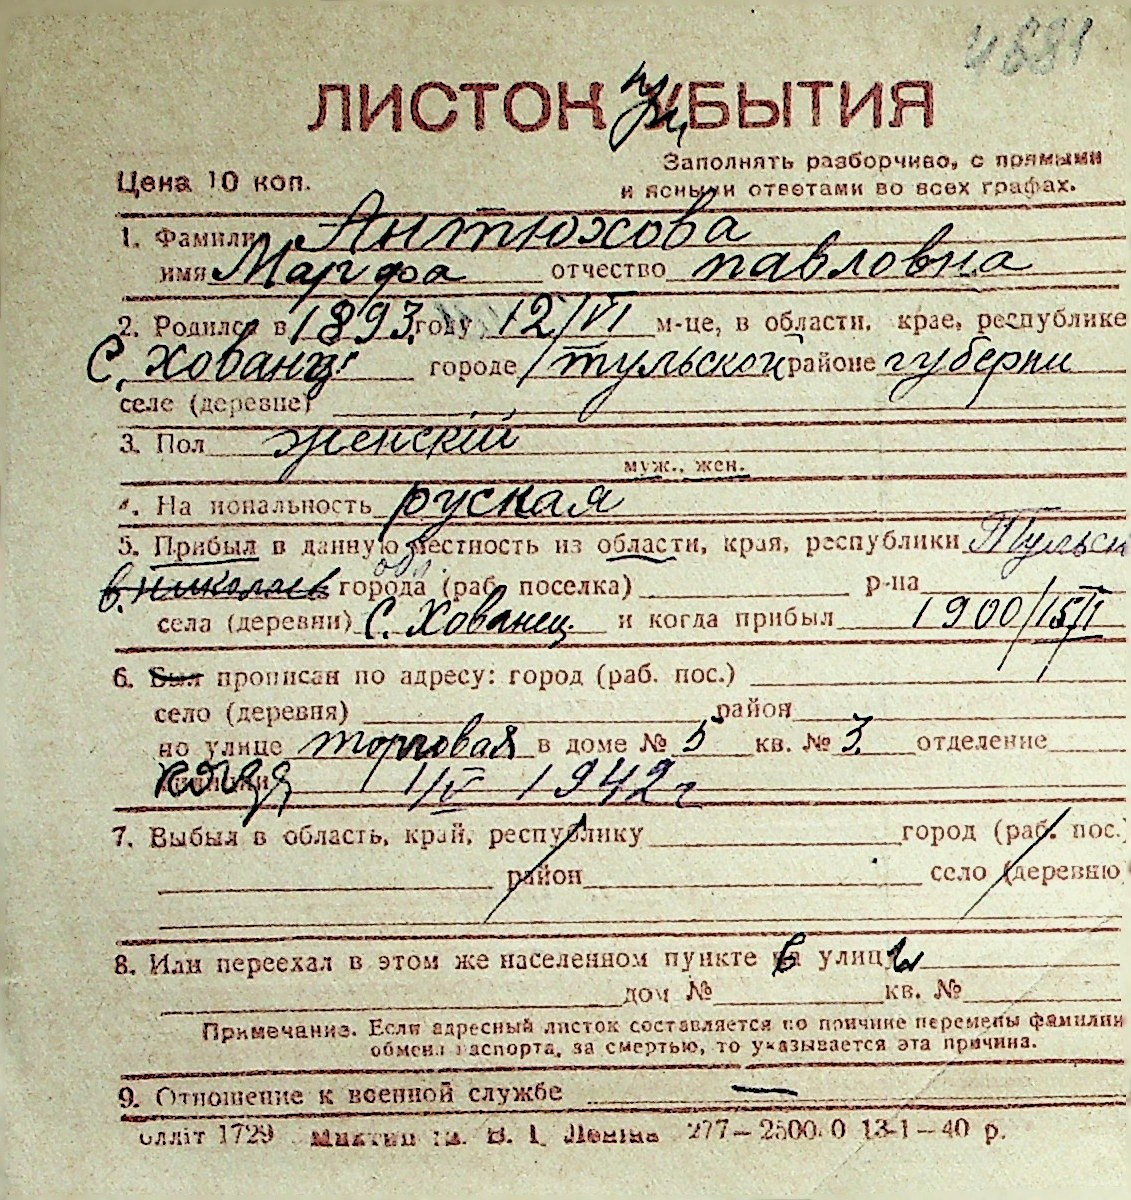 4681
ЛИСТОК УБЫТИЯ при
Цена 10 коп.
Заполнять разборчиво, с прямыми
и ясными ответами во всех графах.
1. Фамилия Антюхова
имя Марфа отчество павловна
2. Родился в 1893 году 12/VI м-це, в области, крае, республике
С. Хованц городе тульской районе губерни
селе (деревне)
3. Пол женский
муж., жен.
4. Национальность руская
5. Прибыл в данную местность из области, края, республики Тульск
в. николаев обл. города (раб. поселка) р-на
села (деревни) С. Хованец и когда прибыл 1900/15/I
6. Был прописан по адресу: город (раб. пос.)
село (деревня) район
по улице торговая в доме № 5 кв. № 3. отделение
когда 1/IV 1942 г
7. Выбыл в область, край, республику город (раб. пос.)
район село (деревню)
8. Или переехал в этом же населенном пункте в улицы
дом № кв. №
Примечание. Если адресный листок составляется по причине перемены фамилии
обмена паспорта, за смертью, то указывается эта причина.
9. Отношение к военной службе —
Олліт 1729 В. І. Леніна 277—2500.0 13-1—40 р.